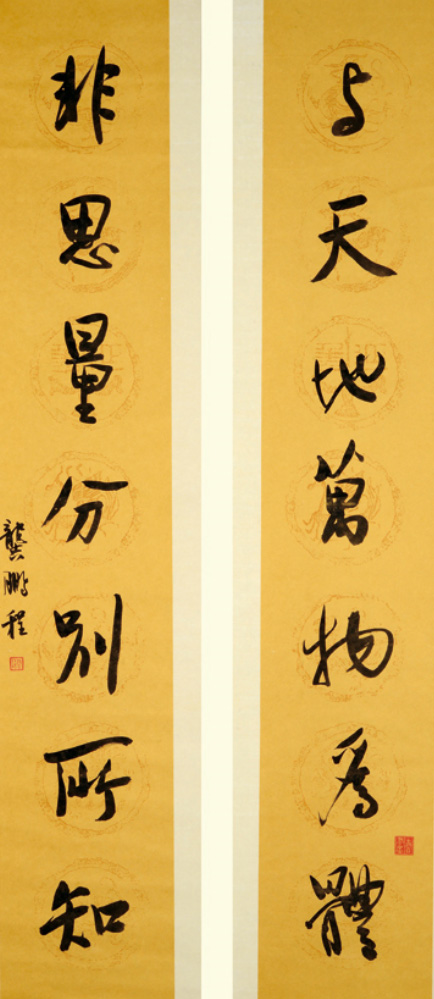 与天地萬物爲體
非思量分别所知
龔鵬程